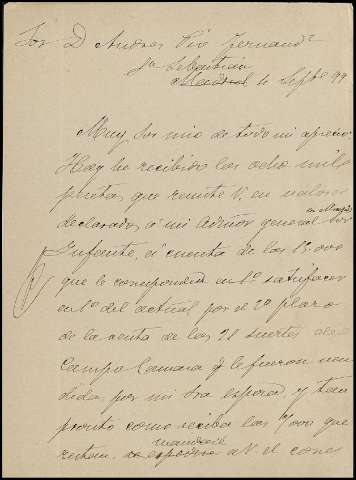 Sor D Andres Pio Fernandz
Sn Sebastián
Madrid 4 Septe 99
Muy Sor mio de todo mi aprecio:
Hoy he recibido las ocho mil
pesetas que remite V. en valores
declarados á mi Admor general en Sor
Infante, á cuenta de las 15,000
que le correspondía satisfacer
en 1º del actual por el 2º plazo
de la venta de las 28 suertes del
Campo Camara q. le fueron ven
didas por mi Sra esposa, y tan
pronto como reciba las 7000 que
restan, mandaré a V. el